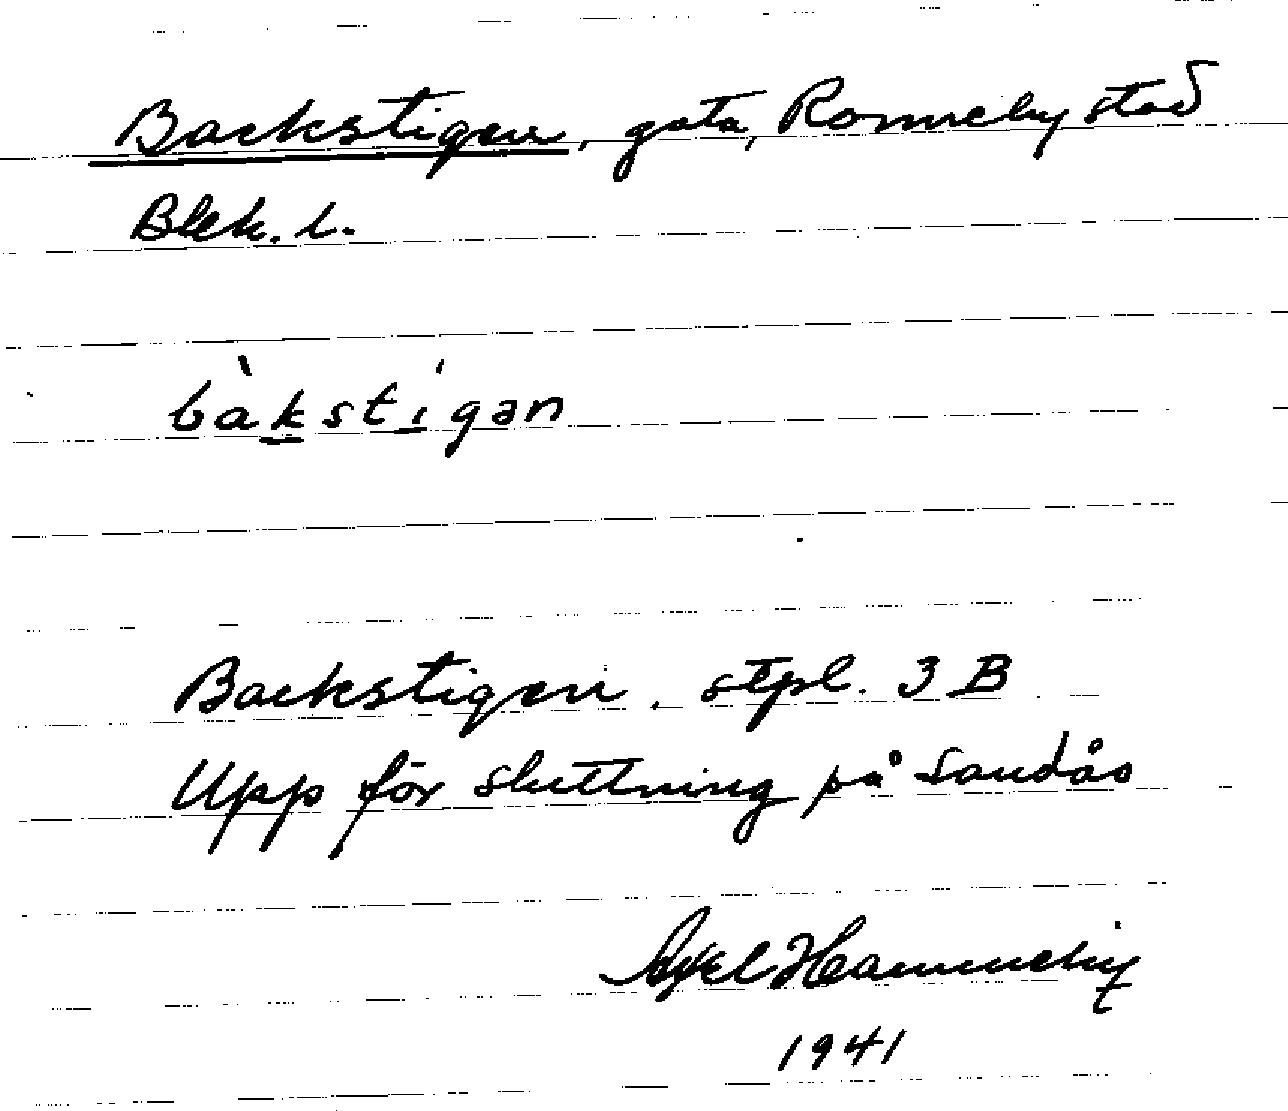 Backstigen, gata, Ronneby stad
Blek. l.
bàkstígən
Backstigen, stpl. 3 B
Upp för sluttning på Sandås
Axel Hammneby
1941